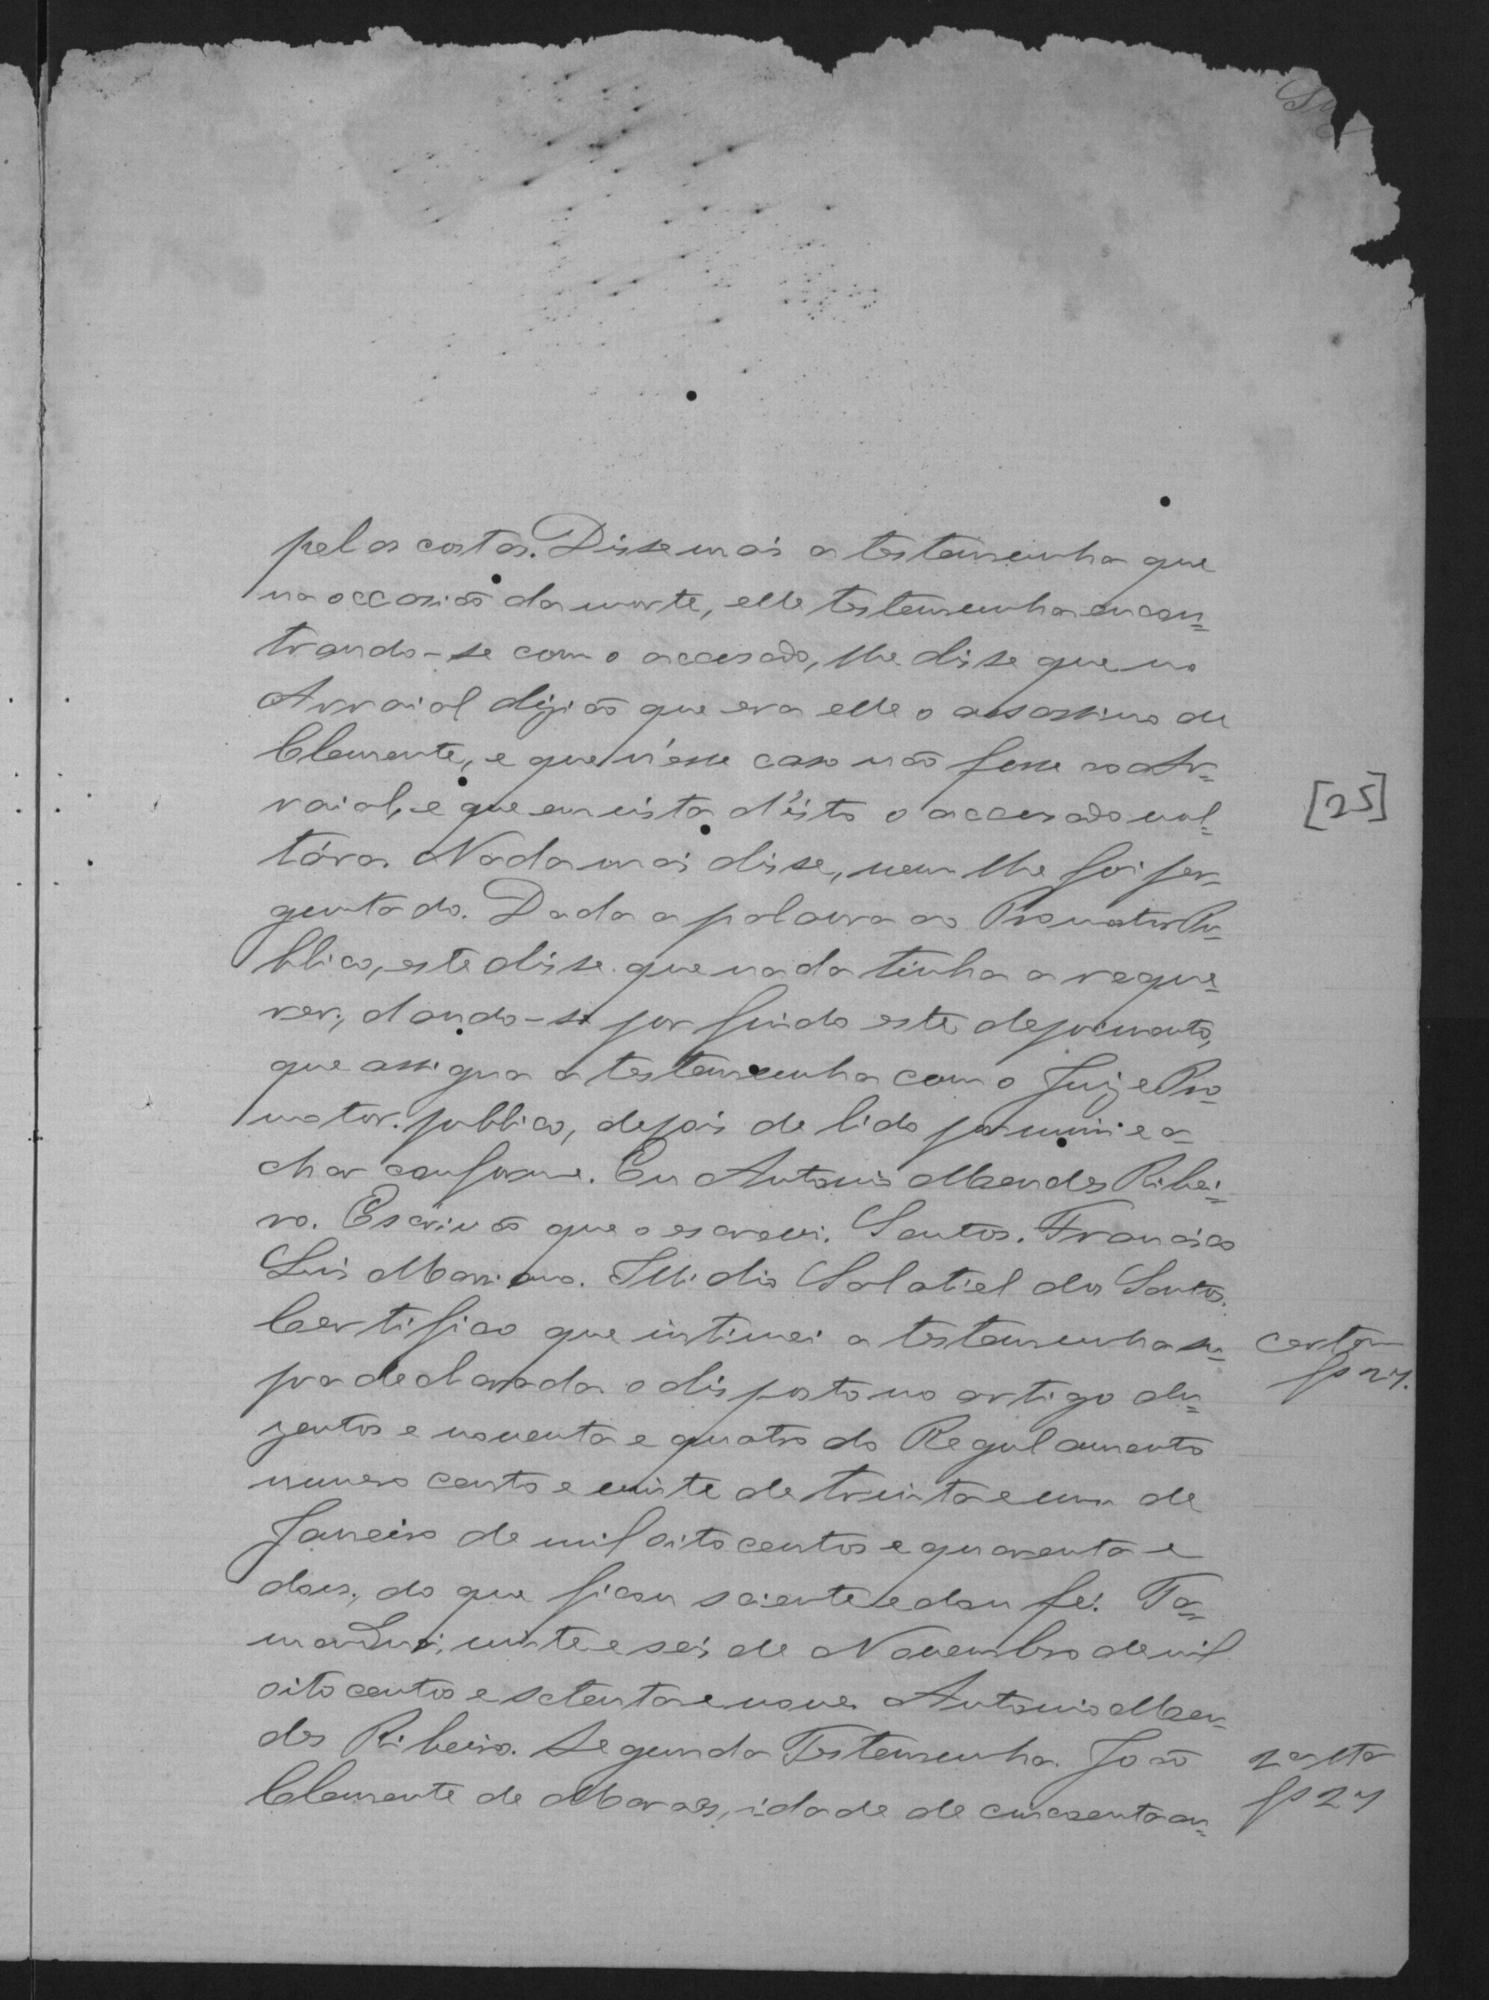 pelas costas. Disse mais a testemunha que
na occasião da morte, elle testemunha encon=
trando-se com o accusado, lhe disse que no
Arraial dizião que era elle o assassino de
Clemente, e que n'esse caso não fosse ao Ar=
raial, e que em vista d'isto o accusado vol=
tára. Nada mais disse, nem lhe foi per=
guntado. Dada a palavra ao Promotor Pu=
blico, este disse que nada tinha a reque=
rer, dando-se por findo este depoimento,
que assigna a testemunha com o Juiz e Pro=
motor publico, depois de lido por mim e a=
char conforme. Eu Antonio Mendes Ribei=
ro. Escrivão que o escrevi. Santos. Francisco
Luis Mariano. Illidio Salatiel dos Santos.
Certifico que intimei a testemunha su=
pra declarada o disposto no artigo du=
zentos e noventa e quatro do Regulamento
numero cento e vinte de trinta e um de
Janeiro de mil oito centos e quarenta e
dois, do que ficou sciente e dou fé. Ta=
manduá, vinte e seis de Novembro de mil
oito centos e setenta e nove. Antonio Men=
des Ribeiro. Segunda Testemunha. João
Clemente de Moraes, idade de cincoenta an=
[25]
certam
fs 27.
2ª
fs 27